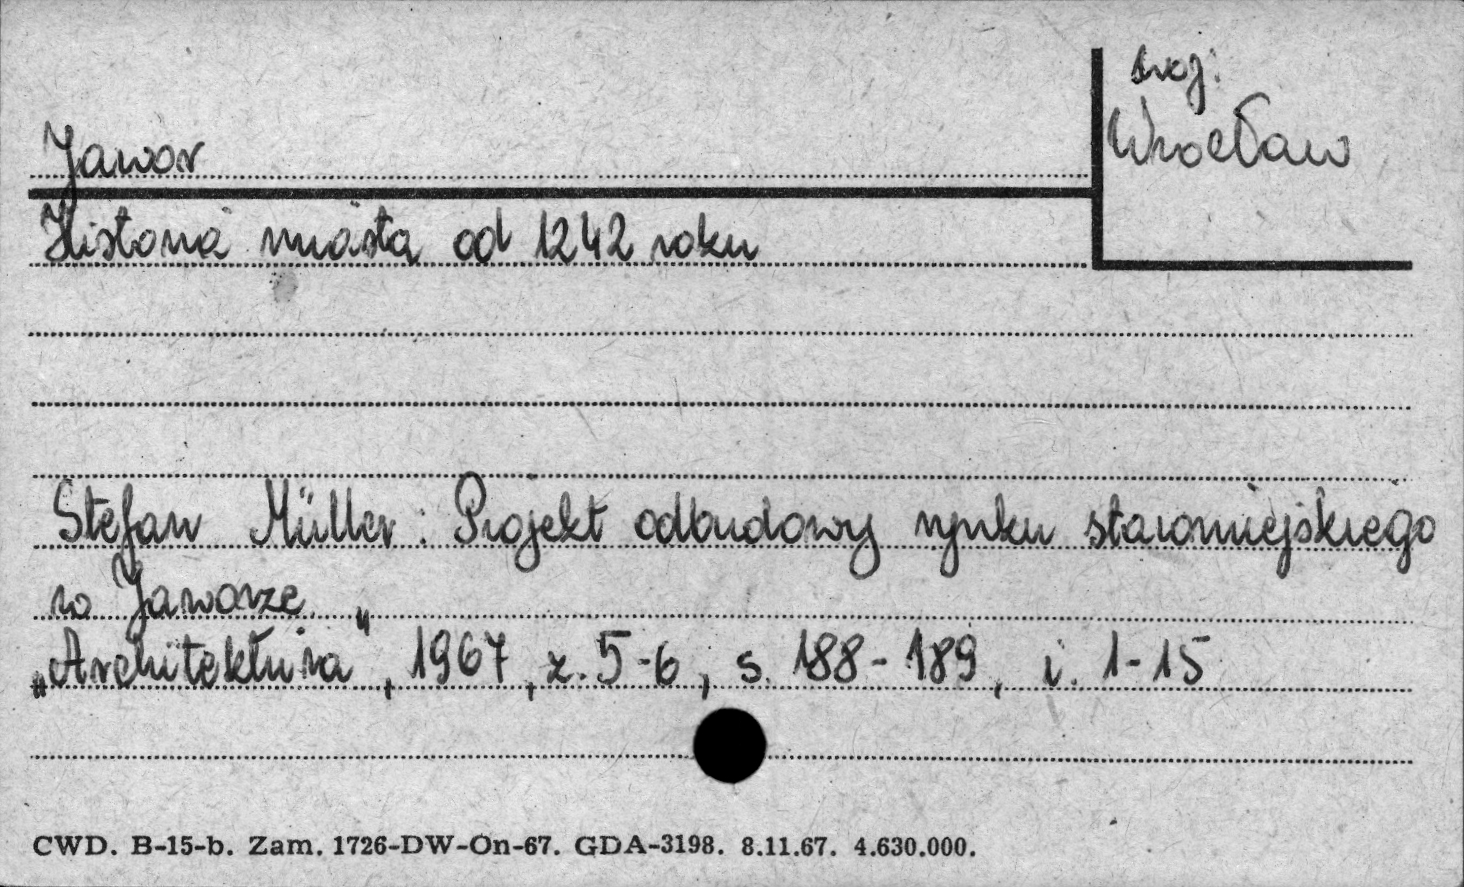 woj.
Wrocław
Jawor
Historia miasta od 1242 roku
Stefan Müller : Projekt odbudowy rynku staromiejskiego
w Jaworze
„Architektura", 1967, z. 5-6, s. 188-189, i. 1-15
CWD. B-15-b. Zam. 1726-DW-On-67. GDA-3198. 8.11.67. 4.630.000.